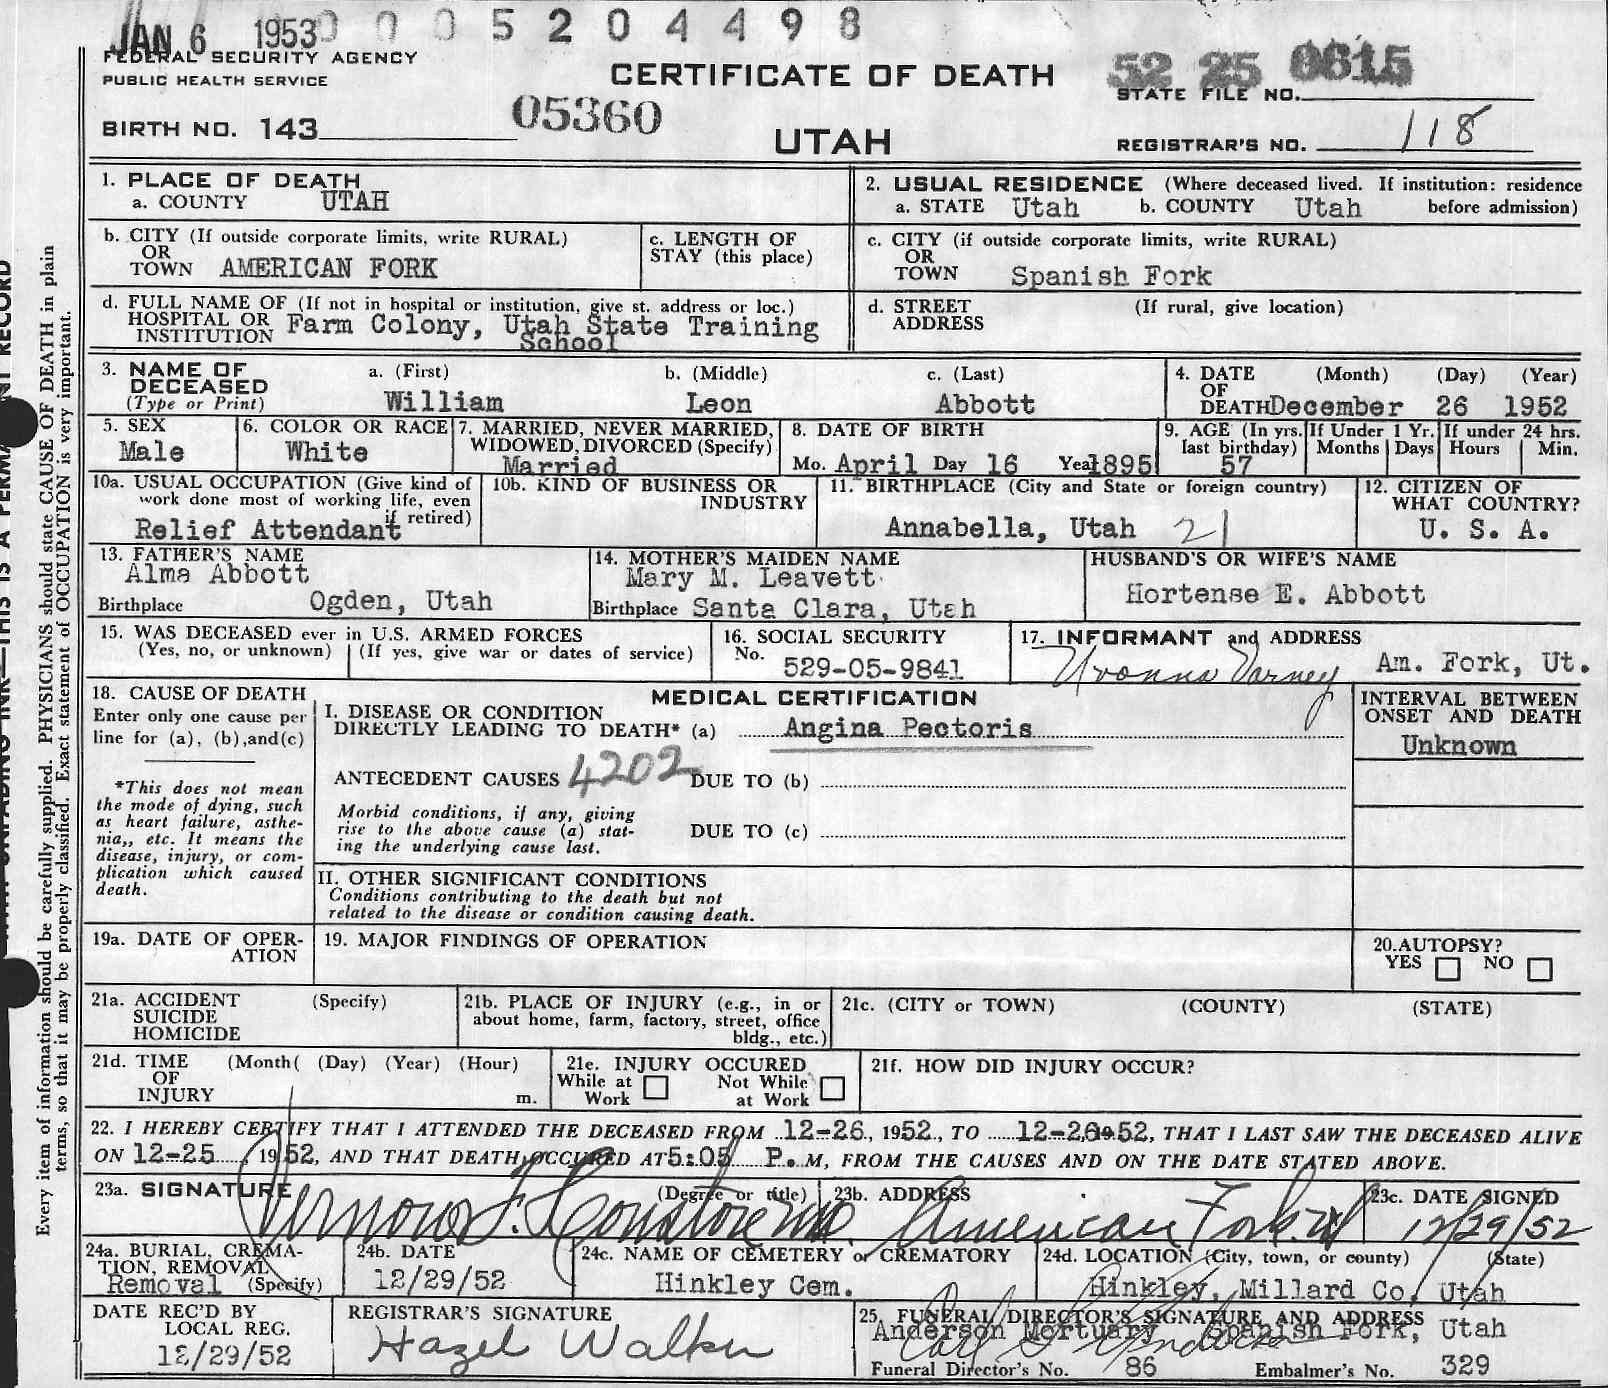 JAN 6 1953 0 0 0 5 2 0 4 4 9 8
FEDERAL SECURITY AGENCY
PUBLIC HEALTH SERVICE
CERTIFICATE OF DEATH
52 25 0615
STATE FILE NO.
BIRTH NO. 143
05360
UTAH
REGISTRAR'S NO. 118
1. PLACE OF DEATH
a. COUNTY UTAH
2. USUAL RESIDENCE (Where deceased lived. If institution: residence
a. STATE Utah b. COUNTY Utah before admission)
b. CITY (If outside corporate limits, write RURAL)
OR
TOWN AMERICAN FORK
c. LENGTH OF
STAY (this place)
c. CITY (if outside corporate limits, write RURAL)
OR
TOWN Spanish Fork
d. FULL NAME OF (If not in hospital or institution, give st. address or loc.)
HOSPITAL OR Farm Colony, Utah State Training
INSTITUTION School
d. STREET (If rural, give location)
ADDRESS
3. NAME OF a. (First) b. (Middle) c. (Last)
DECEASED
(Type or Print) William Leon Abbott
4. DATE (Month) (Day) (Year)
OF
DEATH December 26 1952
5. SEX
Male
6. COLOR OR RACE
White
7. MARRIED, NEVER MARRIED,
WIDOWED, DIVORCED (Specify)
Married
8. DATE OF BIRTH
Mo. April Day 16 Year 1895
9. AGE (In yrs.
last birthday)
57
If Under 1 Yr.
Months Days
If under 24 hrs.
Hours Min.
10a. USUAL OCCUPATION (Give kind of
work done most of working life, even
if retired)
Relief Attendant
10b. KIND OF BUSINESS OR
INDUSTRY
11. BIRTHPLACE (City and State or foreign country)
Annabella, Utah 21
12. CITIZEN OF
WHAT COUNTRY?
U. S. A.
13. FATHER'S NAME
Alma Abbott
Birthplace Ogden, Utah
14. MOTHER'S MAIDEN NAME
Mary M. Leavett
Birthplace Santa Clara, Utah
HUSBAND'S OR WIFE'S NAME
Hortense E. Abbott
15. WAS DECEASED ever in U.S. ARMED FORCES
(Yes, no, or unknown) (If yes, give war or dates of service)
16. SOCIAL SECURITY
No. 529-05-9841
17. INFORMANT and ADDRESS
Yvonna Varney Am. Fork, Ut.
18. CAUSE OF DEATH
Enter only one cause per
line for (a), (b), and (c)
*This does not mean
the mode of dying, such
as heart failure, asthe-
nia,, etc. It means the
disease, injury, or com-
plication which caused
death.
MEDICAL CERTIFICATION
I. DISEASE OR CONDITION
DIRECTLY LEADING TO DEATH* (a) Angina Pectoris
ANTECEDENT CAUSES 4202 DUE TO (b)
Morbid conditions, if any, giving
rise to the above cause (a) stat-
ing the underlying cause last.
DUE TO (c)
INTERVAL BETWEEN
ONSET AND DEATH
Unknown
II. OTHER SIGNIFICANT CONDITIONS
Conditions contributing to the death but not
related to the disease or condition causing death.
19a. DATE OF OPER-
ATION
19. MAJOR FINDINGS OF OPERATION
20. AUTOPSY?
YES NO
21a. ACCIDENT (Specify)
SUICIDE
HOMICIDE
21b. PLACE OF INJURY (e.g., in or
about home, farm, factory, street, office
bldg., etc.)
21c. (CITY or TOWN) (COUNTY) (STATE)
21d. TIME (Month( (Day) (Year) (Hour)
OF
INJURY m.
21e. INJURY OCCURED
While at Not While
Work at Work
21f. HOW DID INJURY OCCUR?
22. I HEREBY CERTIFY THAT I ATTENDED THE DECEASED FROM 12-26, 1952, TO 12-26, 1952, THAT I LAST SAW THE DECEASED ALIVE
ON 12-25, 1952, AND THAT DEATH OCCURED AT 5:05 P.M, FROM THE CAUSES AND ON THE DATE STATED ABOVE.
23a. SIGNATURE (Degree or title)
23b. ADDRESS
American Fork, Ut
23c. DATE SIGNED
12/29/52
24a. BURIAL, CREMA-
TION, REMOVAL
Removal (Specify)
24b. DATE
12/29/52
24c. NAME OF CEMETERY or CREMATORY
Hinkley Cem.
24d. LOCATION (City, town, or county) (State)
Hinkley, Millard Co, Utah
DATE REC'D BY
LOCAL REG.
12/29/52
REGISTRAR'S SIGNATURE
Hazel Walker
25. FUNERAL DIRECTOR'S SIGNATURE AND ADDRESS
Anderson Mortuary Spanish Fork, Utah
Funeral Director's No. 86 Embalmer's No. 329
Every item of information should be carefully supplied. PHYSICIANS should state CAUSE OF DEATH in plain
terms, so that it may be properly classified. Exact statement of OCCUPATION is very important.